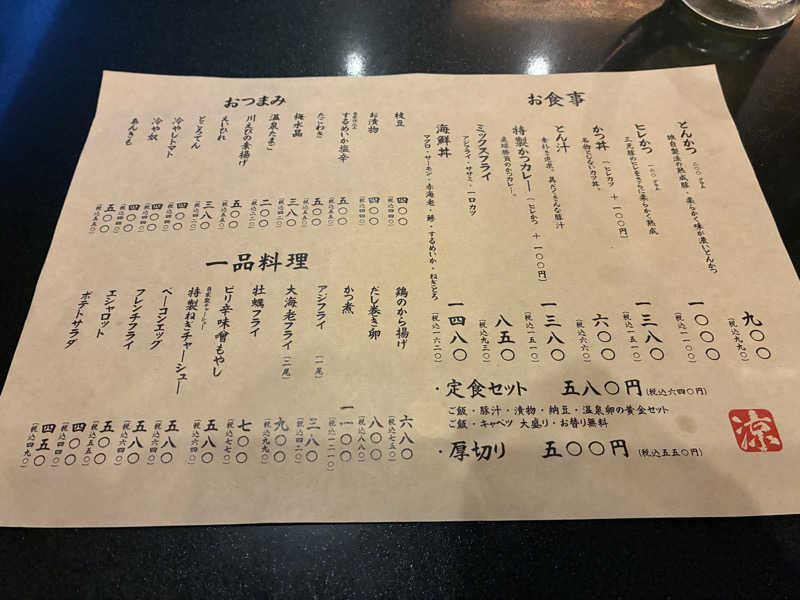 お食事
とんかつ 二〇〇グラム
独自製法の熟成豚・柔らかく味が濃いとんかつ
九〇〇
(税込九九〇)
ヒレかつ 一六〇グラム
三元豚のヒレをさらに柔らかく熟成
一〇〇〇
(税込一一〇〇)
かつ丼 (ヒレカツ + 一〇〇円)
名物となりいカツ丼。
一三八〇
(税込一五一〇)
とん汁
具だくさんな豚汁
六〇〇
(税込六六〇)
特製かつカレー (ヒレかつ + 一〇〇円)
直球勝負のかつカレー。
一三八〇
(税込一五一〇)
ミックスフライ
アジフライ・ササミ・一口カツ
八五〇
(税込九三〇)
海鮮丼
マグロ・サーモン・赤海老・鯵・するめいか・ねぎとろ
一四八〇
(税込一六二〇)
・定食セット 五八〇円(税込六四〇円)
ご飯・豚汁・漬物・納豆・温泉卵の黄金セット
ご飯・キャベツ 大盛り・お替り無料
・厚切り 五〇〇円(税込五五〇円)
涼
おつまみ
枝豆 四〇〇
(税込四四〇)
お漬物 四〇〇
(税込四四〇)
するめいか塩辛 五〇〇
(税込五五〇)
たこわさ 五〇〇
(税込五五〇)
梅水晶 三八〇
(税込四二〇)
温泉たまご 二〇〇
(税込二二〇)
川えびの素揚げ 五〇〇
(税込五五〇)
えいひれ 五〇〇
ところてん 三八〇
(税込四二〇)
冷やしトマト 四〇〇
(税込四四〇)
冷や奴 四〇〇
(税込四四〇)
あんきも 五〇〇
(税込五五〇)
一品料理
鶏のから揚げ 六八〇
(税込七五〇)
だし巻き卵 八〇〇
(税込八八〇)
かつ煮 一一〇〇
(税込一二一〇)
アジフライ (一尾) 三八〇
(税込四二〇)
大海老フライ (二尾) 九〇〇
(税込九九〇)
牡蠣フライ 七〇〇
(税込七七〇)
ピリ辛味噌もやし 五八〇
(税込六四〇)
自家製チャーシュー
特製ねぎチャーシュー 五八〇
(税込六四〇)
ベーコンエッグ 五八〇
(税込六四〇)
フレンチフライ 五〇〇
(税込五五〇)
エシャロット 四〇〇
(税込四四〇)
ポテトサラダ 四五〇
(税込四九〇)